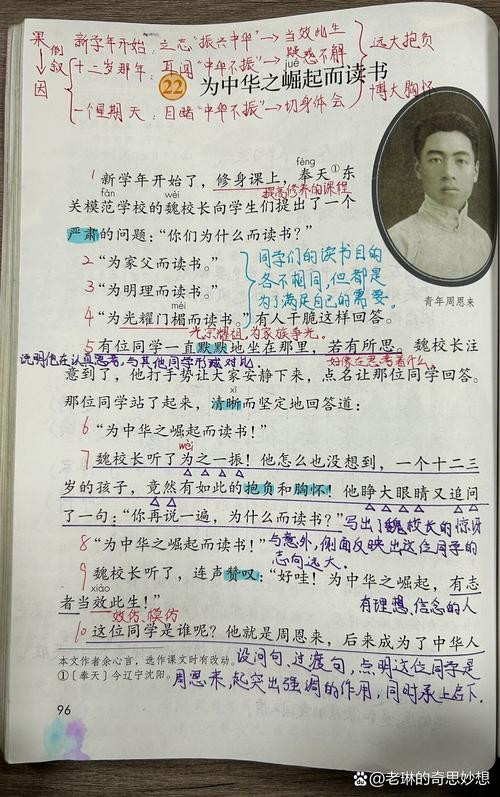 果 倒叙 因
新学年开始:立志"振兴中华"→当效此生
十二岁那年:耳闻"中华不振"→疑惑不解
一个星期天:目睹"中华不振"→切身体会
远大抱负
博大胸怀
jué
22 为中华之崛起而读书
fèng
1 新学年开始了,修身课上,奉天①东
提高修养的课程
fàn wèi
关模范学校的魏校长向学生们提出了一个
严肃的问题:“你们为什么而读书?”
2 “为家父而读书。”
3 “为明理而读书。”
méi
4 “为光耀门楣而读书。”有人干脆这样回答。
同学们的读书目的
各不相同,但都是
为了满足自己的需要。
青年周恩来
光宗耀祖,为家族争光。
5 有位同学一直默默地坐在那里,若有所思。魏校长注
说明他在认真思考,与其他同学形成对比。
好像在思考着什么。
意到了,他打手势让大家安静下来,点名让那位同学回答。
xī
那位同学站了起来,清晰而坚定地回答道:
6 “为中华之崛起而读书!”
wèi
7 魏校长听了为之一振!他怎么也没想到,一个十二三
岁的孩子,竟然有如此的抱负和胸怀!他睁大眼睛又追问
了一句:“你再说一遍,为什么而读书?”
写出了魏校长的惊讶
与意外,侧面反映出这位同学的
志向远大。
8 “为中华之崛起而读书!”
9 魏校长听了,连声赞叹:“好哇!为中华之崛起,有志
xiào
者当效此生!”
效仿、模仿
有理想、信念的人
10 这位同学是谁呢?他就是周恩来,后来成为了中华人
设问句、过渡句,点明这位同学是
周恩来,起突出强调的作用,同时承上启下.
本文作者余心言,选作课文时有改动。
①〔奉天〕今辽宁沈阳。
96
@老琳的奇思妙想